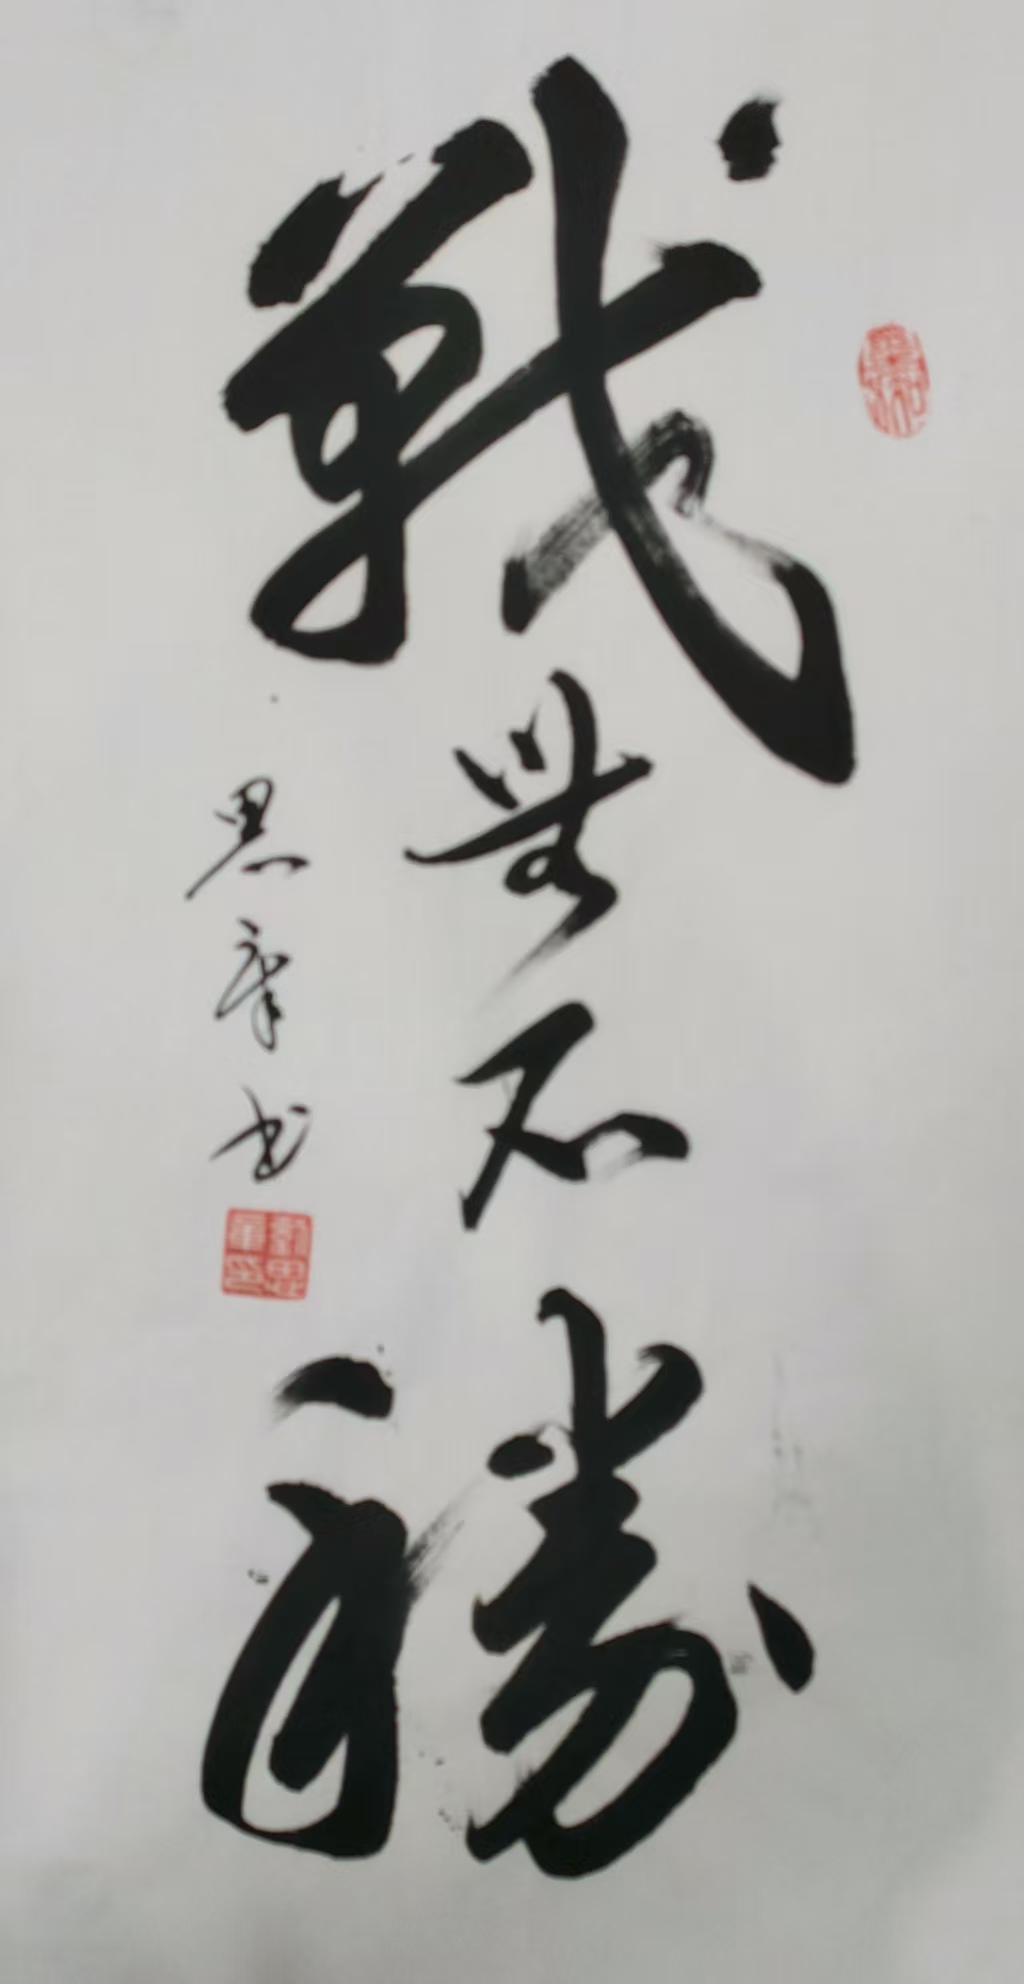 戰無不勝
思軍书